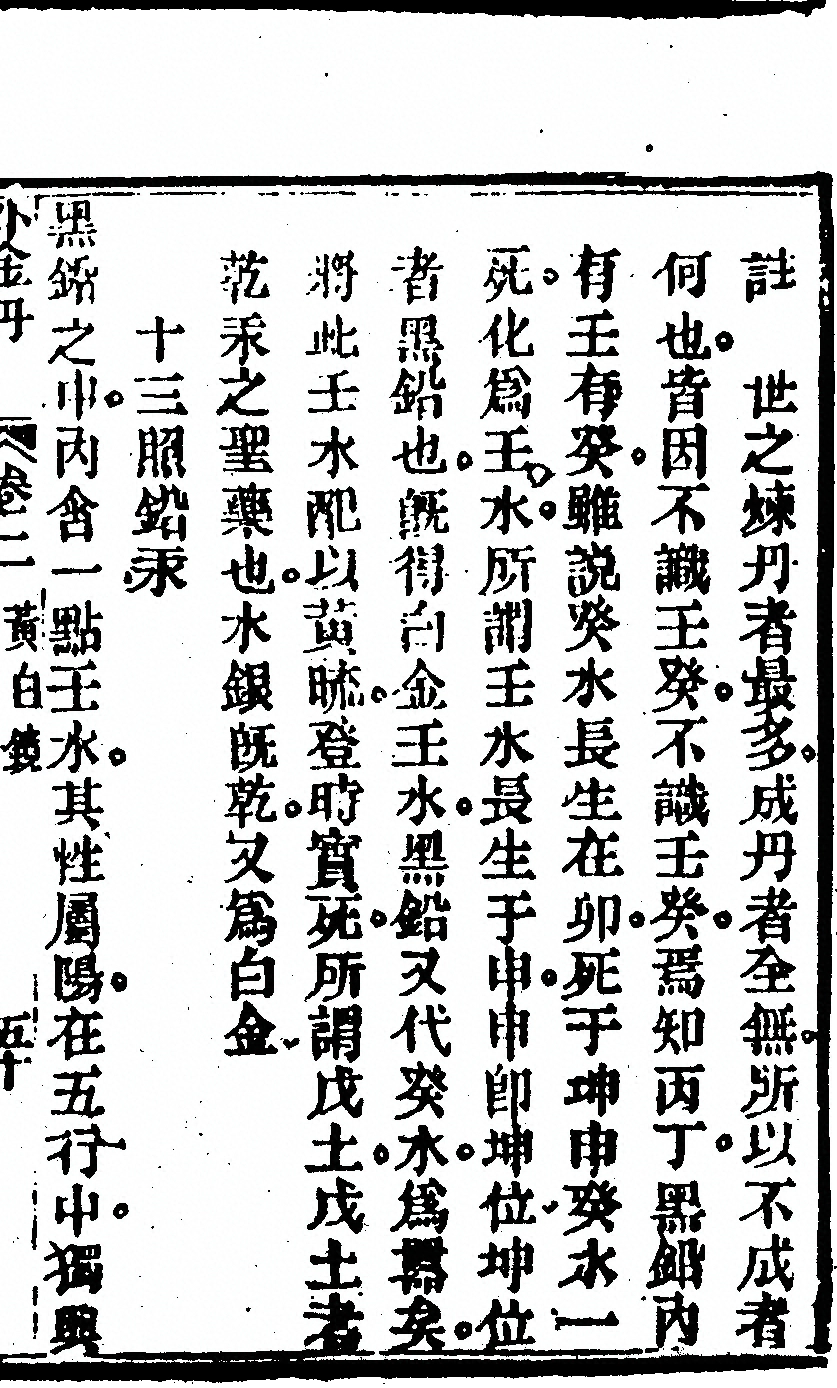 註　世之煉丹者最多成丹者全無所以不成者
何也皆因不識壬癸不識壬癸焉知丙丁黑鉛內
有壬有癸雖説癸水長生在卯死于坤申癸水一
死化爲壬水所謂壬水長生于申申卽坤位坤位
者黑鉛也旣得白金壬水黑鉛又代癸水爲嚣矣
將此壬水配以黃硫登時實死所謂戊土戊土者
乾汞之聖藥也水銀旣乾又爲白金
十三照鉛汞
黑鉛之中內含一點壬水其性屬陽在五行中獨與
外金丹　卷二　黃白鏡　五十